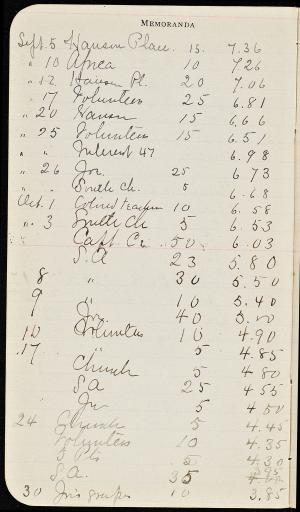 MEMORANDA
Sept. 5 Hanson Place. 15. 7.36
" 10 Africa 10 7.26
" 12 Hanson Pl. 20 7.06
" 17 Volunteers 25 6.81
" 20 Hanson 15 6.66
" 25 Volunteers 15 6.51
" " Interest 47 6.98
" 26 25 6 73
" " South Ch. 5 6.68
Oct. 1 Colored 10 6.58
" 3 South Ch 5 6.53
" Capt. 50 6.03
S.A 23 5.80
8 " 30 5.50
9 " 10 5.40
40 5.00
10 Volunteers 10 4.90
17 " 5 4.85
Church 5 4.80
S.A 25 4.55
5 4.50
24 Church 5 4.45
Volunteers 10 4.35
5 4.30
S.A. 35 3.95
30 10 3.85